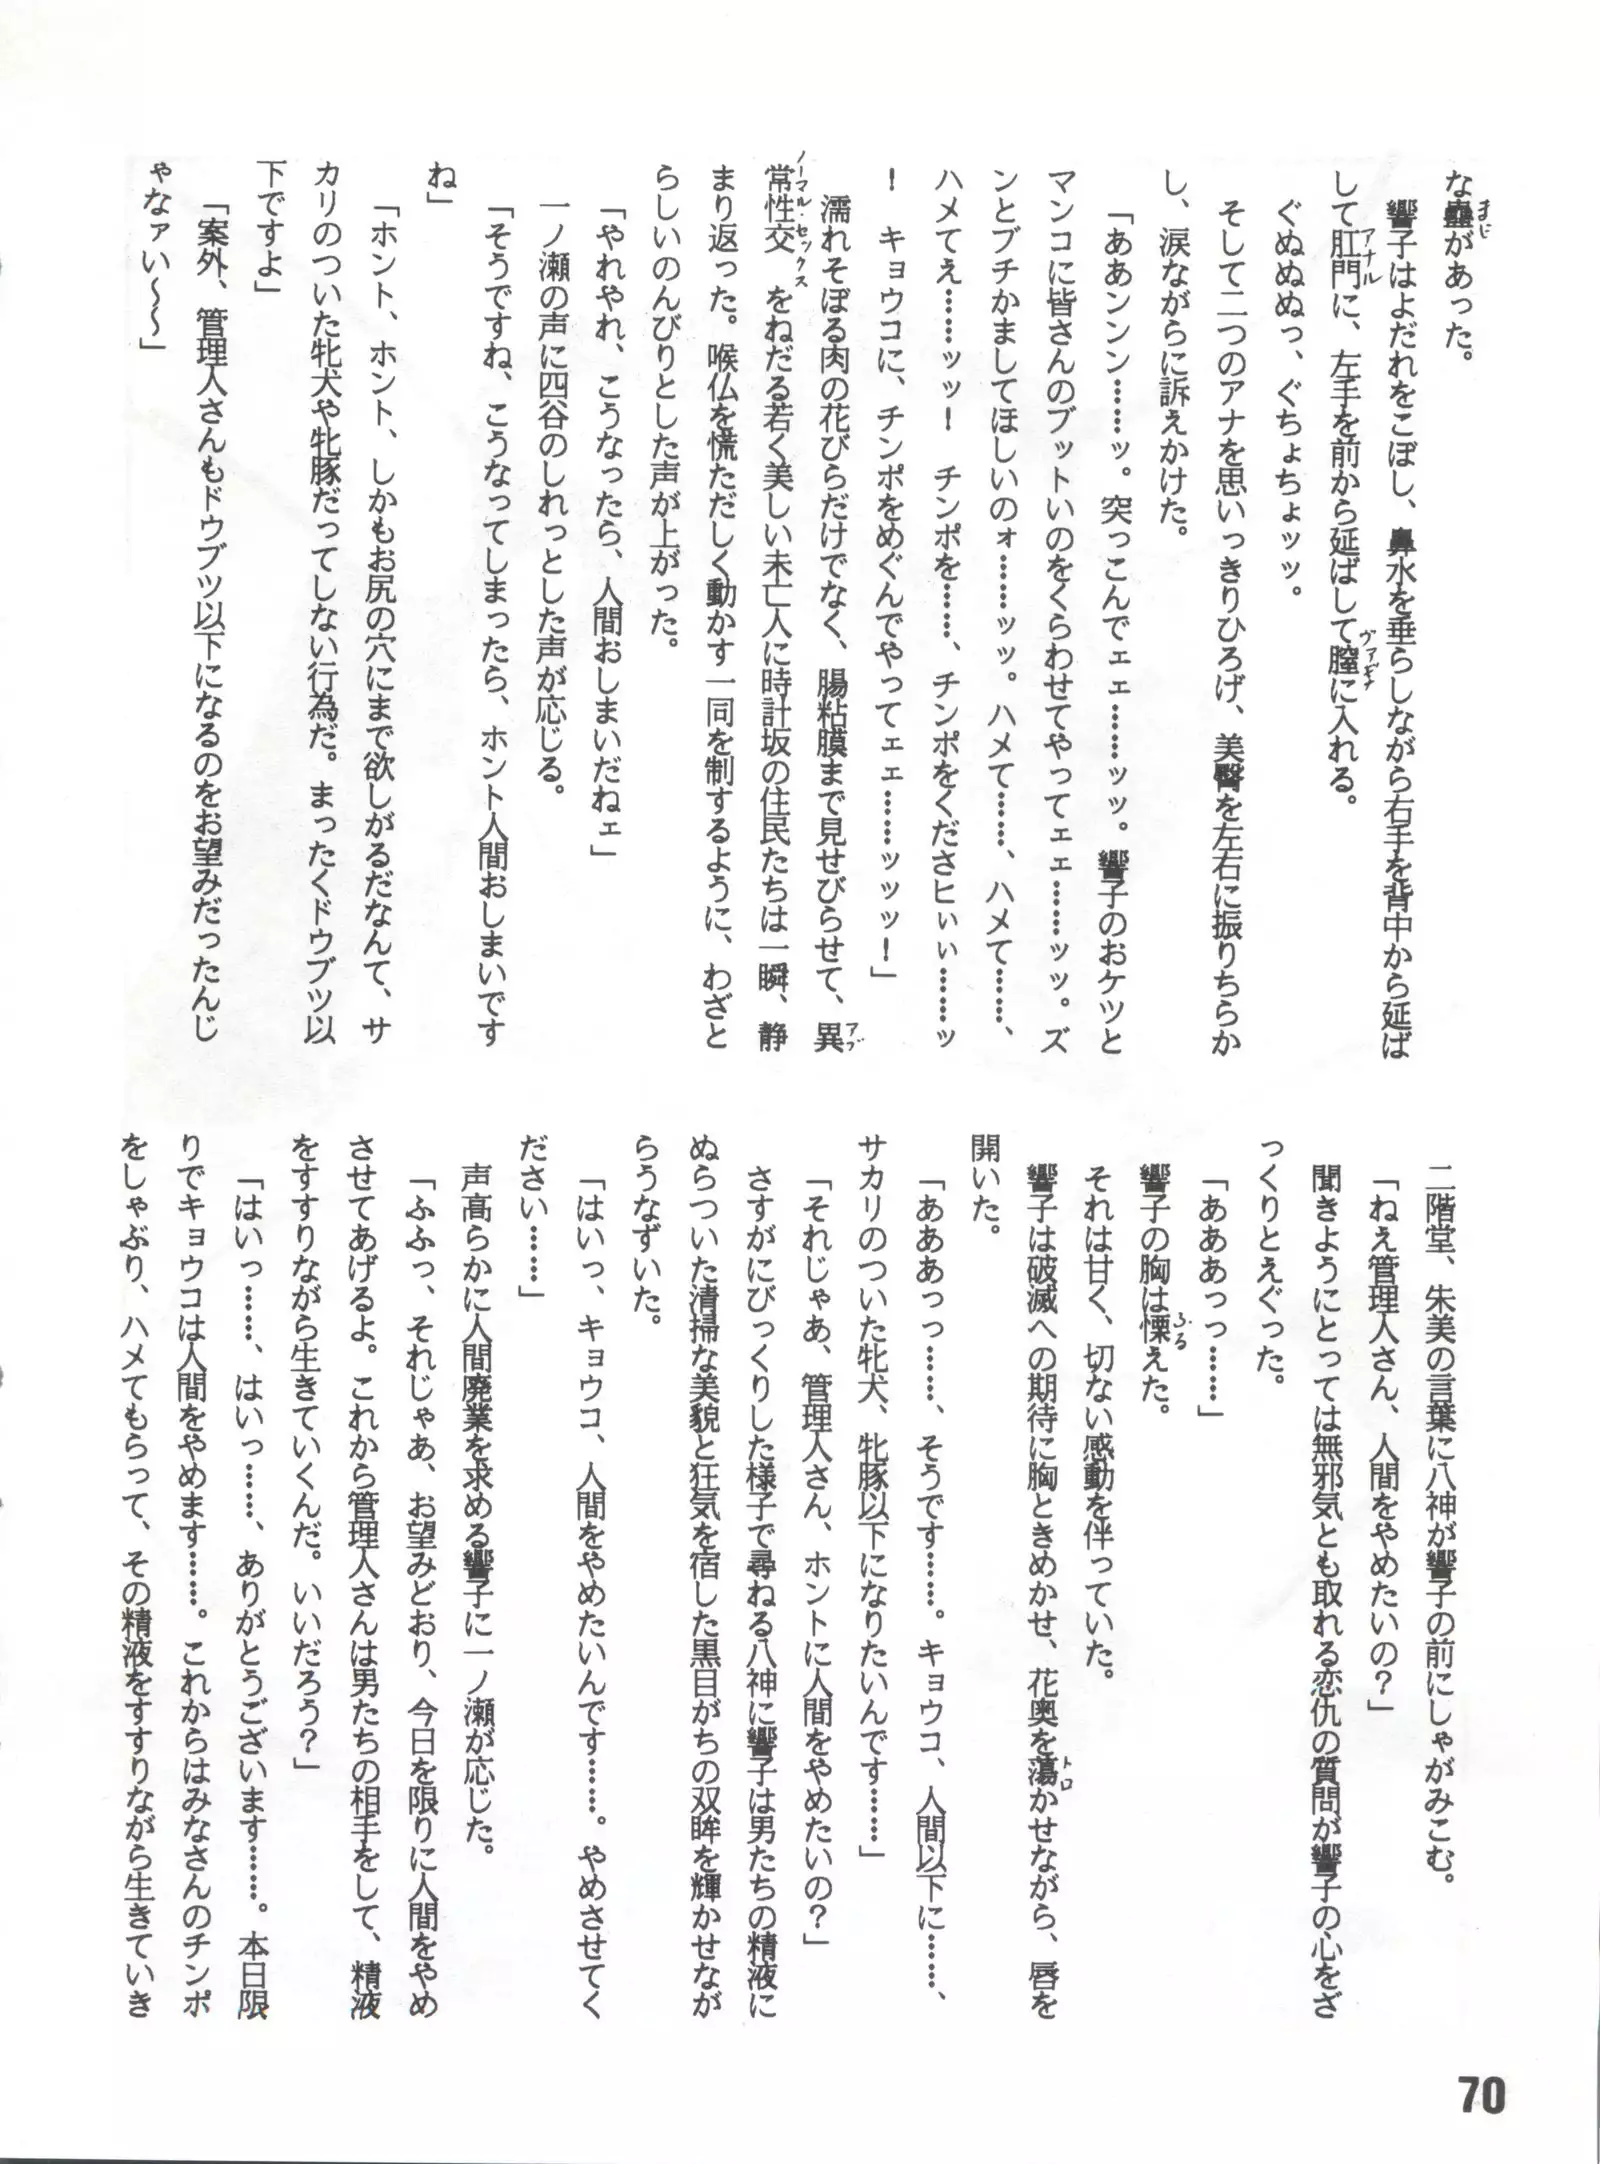 な蠱があった。
響子はよだれをこぼし、鼻水を垂らしながら右手を背中から延ば
して肛門に、左手を前から延ばして膣に入れる。
ぐぬぬぬっ、ぐちょちょッッ。
そして二つのアナを思いっきりひろげ、美臀を左右に振りちらか
し、涙ながらに訴えかけた。
「ああンンン……ッ。突っこんでェェ……ッッ。響子のおケツと
マンコに皆さんのブットいのをくらわせてやってェェ……ッッ。ズ
ンとブチかましてほしいのォ……ッッ。ハメて……、ハメて……、
ハメてえ……ッッ！　チンポを……、チンポをくださヒぃぃ……ッ
！　キョウコに、チンポをめぐんでやってェェ……ッッッ！」
濡れそぼる肉の花びらだけでなく、腸粘膜まで見せびらせて、異
常性交　をねだる若く美しい未亡人に時計坂の住民たちは一瞬、静
まり返った。喉仏を慌ただしく動かす一同を制するように、わざと
らしいのんびりとした声が上がった。
「やれやれ、こうなったら、人間おしまいだねェ」
一ノ瀬の声に四谷のしれっとした声が応じる。
「そうですね、こうなってしまったら、ホント人間おしまいです
ね」
「ホント、ホント、しかもお尻の穴にまで欲しがるだなんて、サ
カリのついた牝犬や牝豚だってしない行為だ。まったくドウブツ以
下ですよ」
「案外、管理人さんもドウブツ以下になるのをお望みだったんじ
ゃなァい～～」
二階堂、朱美の言葉に八神が響子の前にしゃがみこむ。
「ねえ管理人さん、人間をやめたいの？」
聞きようにとっては無邪気とも取れる恋仇の質問が響子の心をざ
っくりとえぐった。
「あああっっ……」
響子の胸は慄えた。
それは甘く、切ない感動を伴っていた。
響子は破滅への期待に胸ときめかせ、花奥を蕩かせながら、唇を
開いた。
「あああっっ……、そうです……。キョウコ、人間以下に……、
サカリのついた牝犬、牝豚以下になりたいんです……」
「それじゃあ、管理人さん、ホントに人間をやめたいの？」
さすがにびっくりした様子で尋ねる八神に響子は男たちの精液に
ぬらついた清掃な美貌と狂気を宿した黒目がちの双眸を輝かせなが
らうなずいた。
「はいっ、キョウコ、人間をやめたいんです……。やめさせてく
ださい……」
声高らかに人間廃業を求める響子に一ノ瀬が応じた。
「ふふっ、それじゃあ、お望みどおり、今日を限りに人間をやめ
させてあげるよ。これから管理人さんは男たちの相手をして、精液
をすすりながら生きていくんだ。いいだろう？」
「はいっ……、はいっ……、ありがとうございます……。本日限
りでキョウコは人間をやめます……。これからはみなさんのチンポ
をしゃぶり、ハメてもらって、その精液をすすりながら生きていき
70